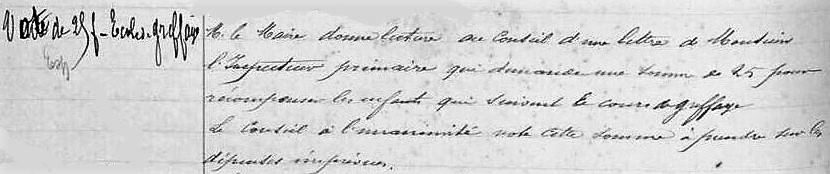 Vote de 25 f - Ecoles - greffage
M. le Maire donne lecture au Conseil d'une lettre de Monsieur
l'Inspecteur primaire qui demande une somme de 25 pour
récompenser les enfants qui suivent le cours de greffage
Le Conseil à l'unanimité vote cette somme à prendre sur les
dépenses imprévues.